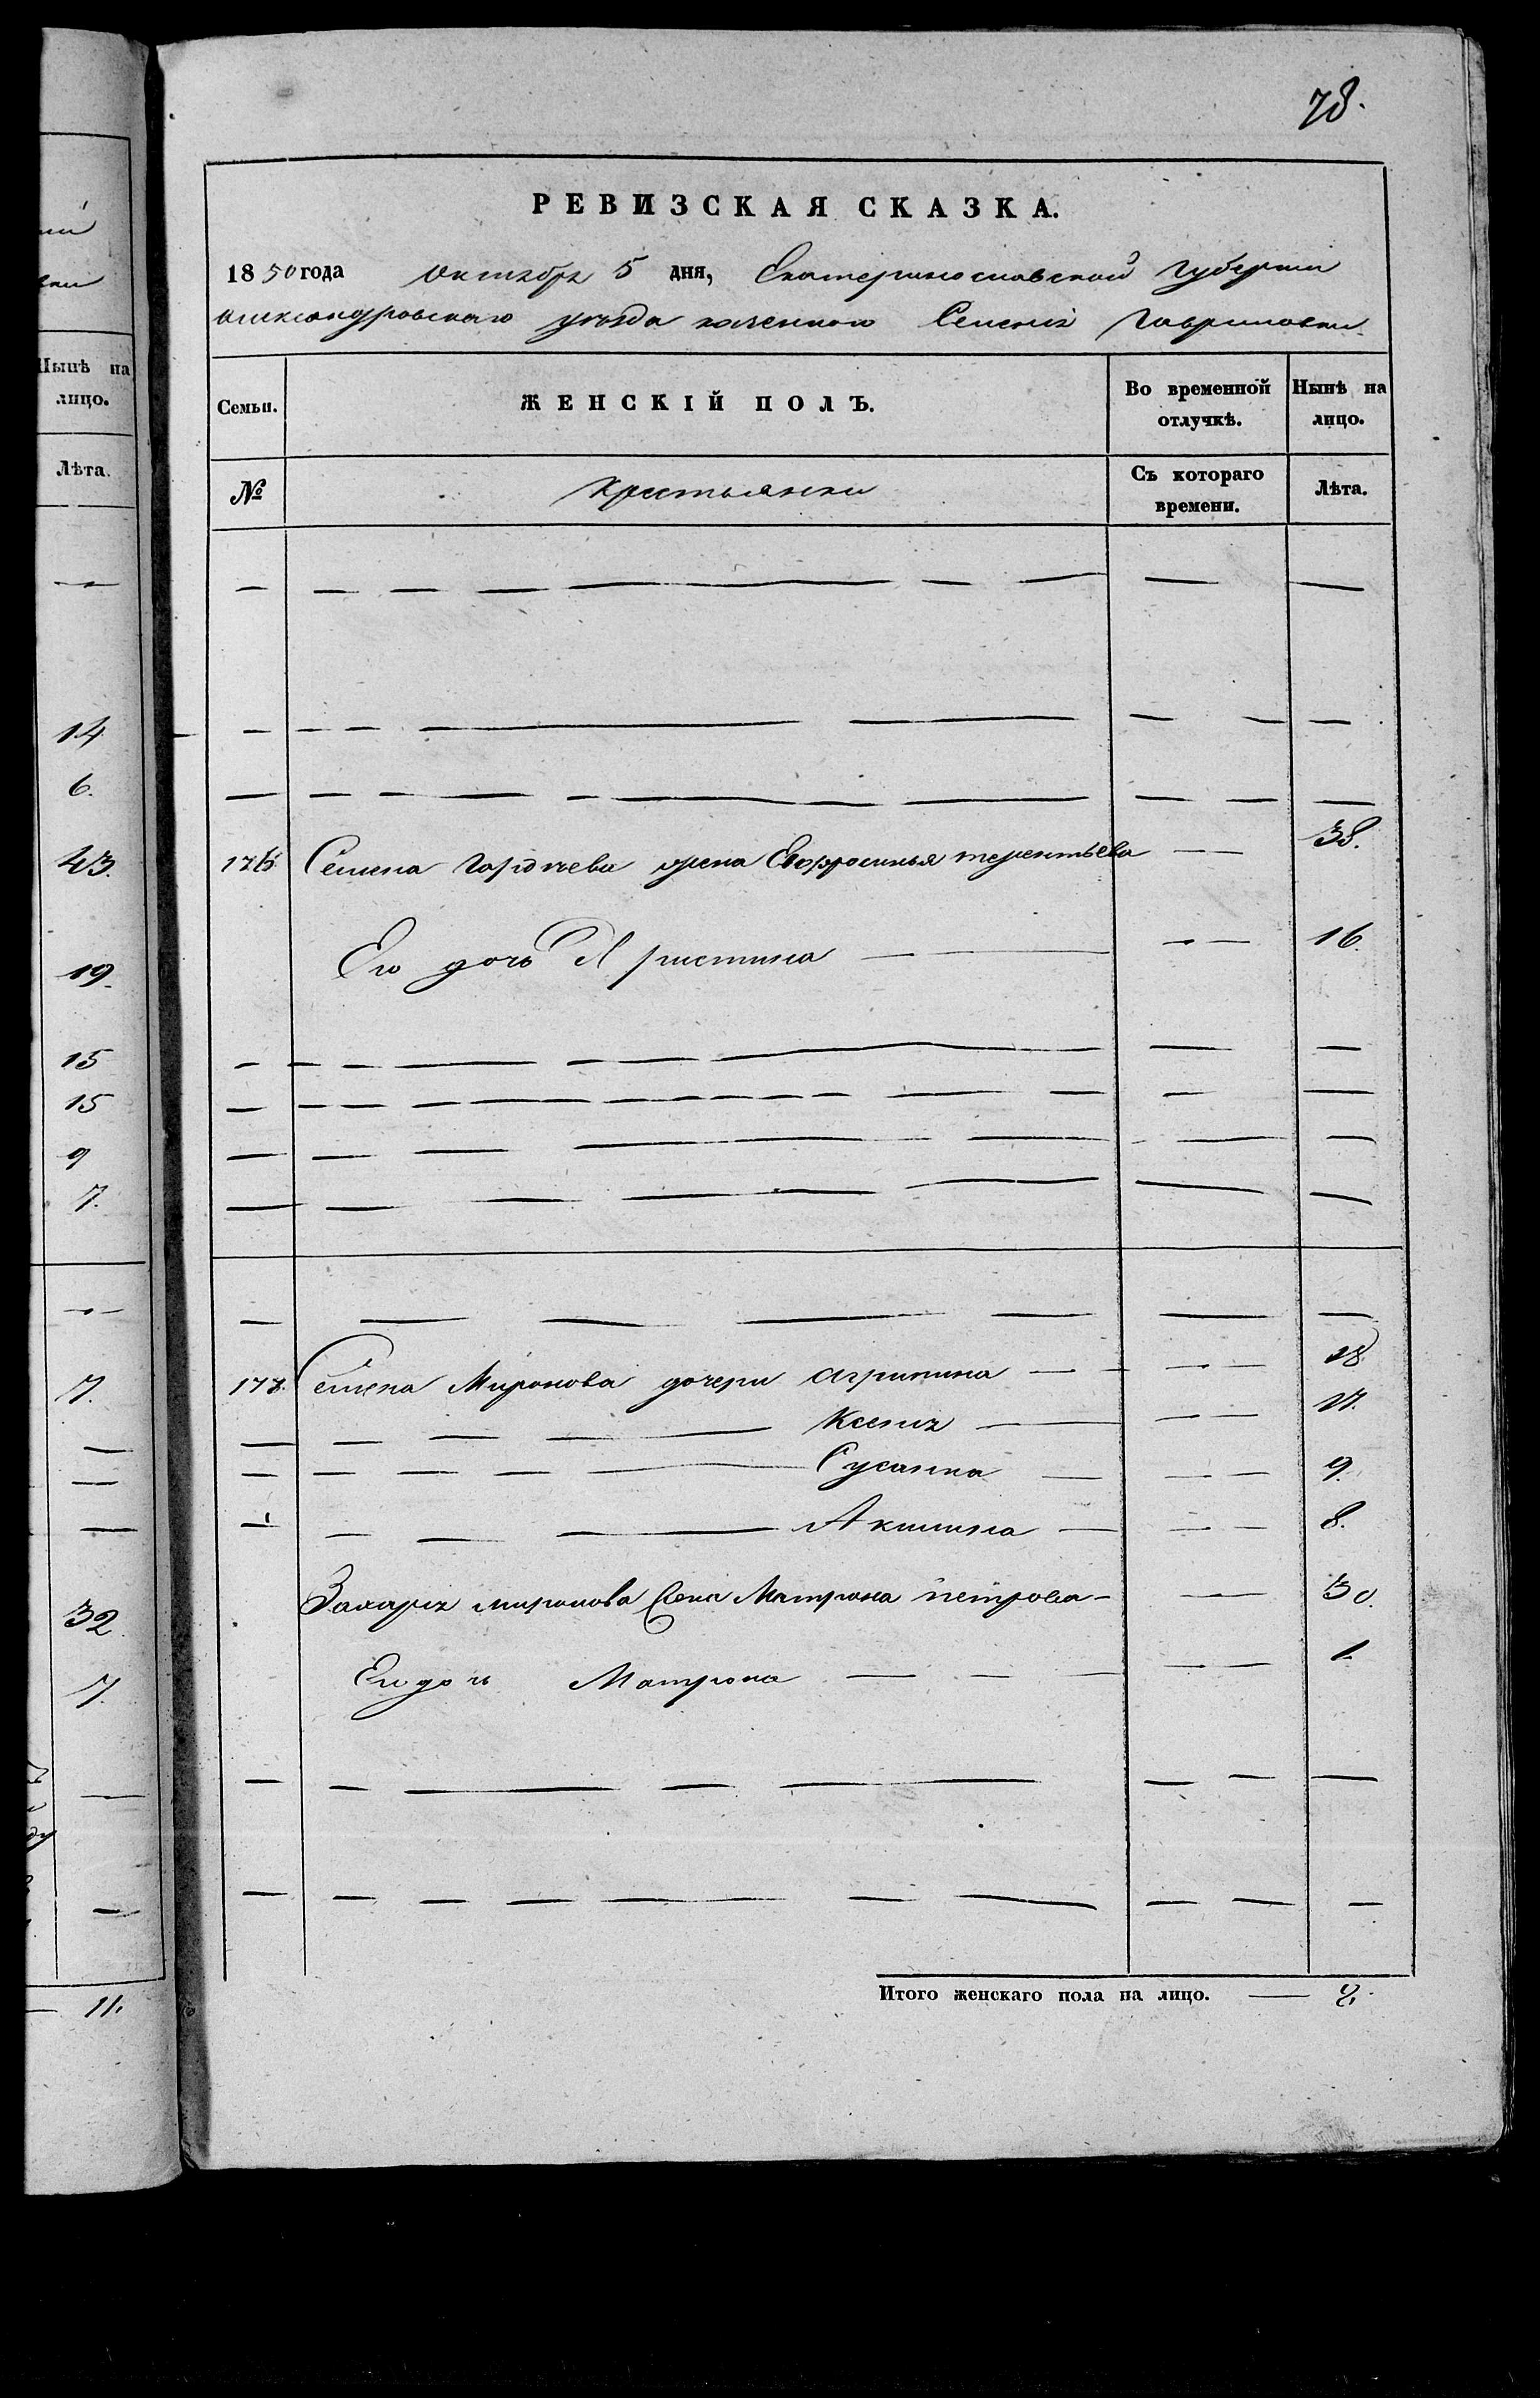 ній
Нынѣ на
лицо.
Лѣта.
14
6.
43.
19.
15
15
9
7.
7.
32
7.
11.
78.
РЕВИЗСКАЯ СКАЗКА.
1850 года октября 5 дня, Екатеринославской губернии
александровскаго уѣзда казенного Селенія Гавриловки
Семьи. ЖЕНСКІЙ ПОЛЪ. Во временной отлучкѣ. Нынѣ на лицо.
№ крестьянки Съ котораго времени. Лѣта.
176 Семена Гордѣева жена Ефросинья терентьева 38.
Его дочь Христина 16.
177. Семена Миронова дочери агрипина 18
Ксения 17.
Сусанна 9.
Акилина 8.
Захария миронова жена Матрона петрова 30.
Его дочь Матрона 1.
Итого женскаго пола на лицо. 8.